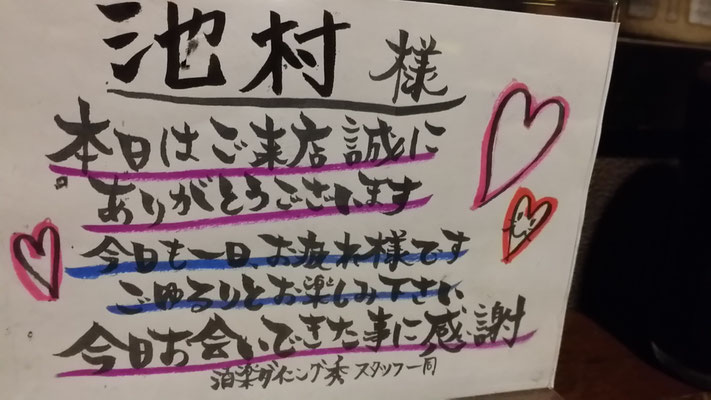 池村 様
本日はご来店誠に
ありがとうございます
今日も一日、お疲れ様です
ごゆるりとお楽しみ下さい
今日お会いできた事に感謝
泊楽ダイニング秀 スタッフ一同